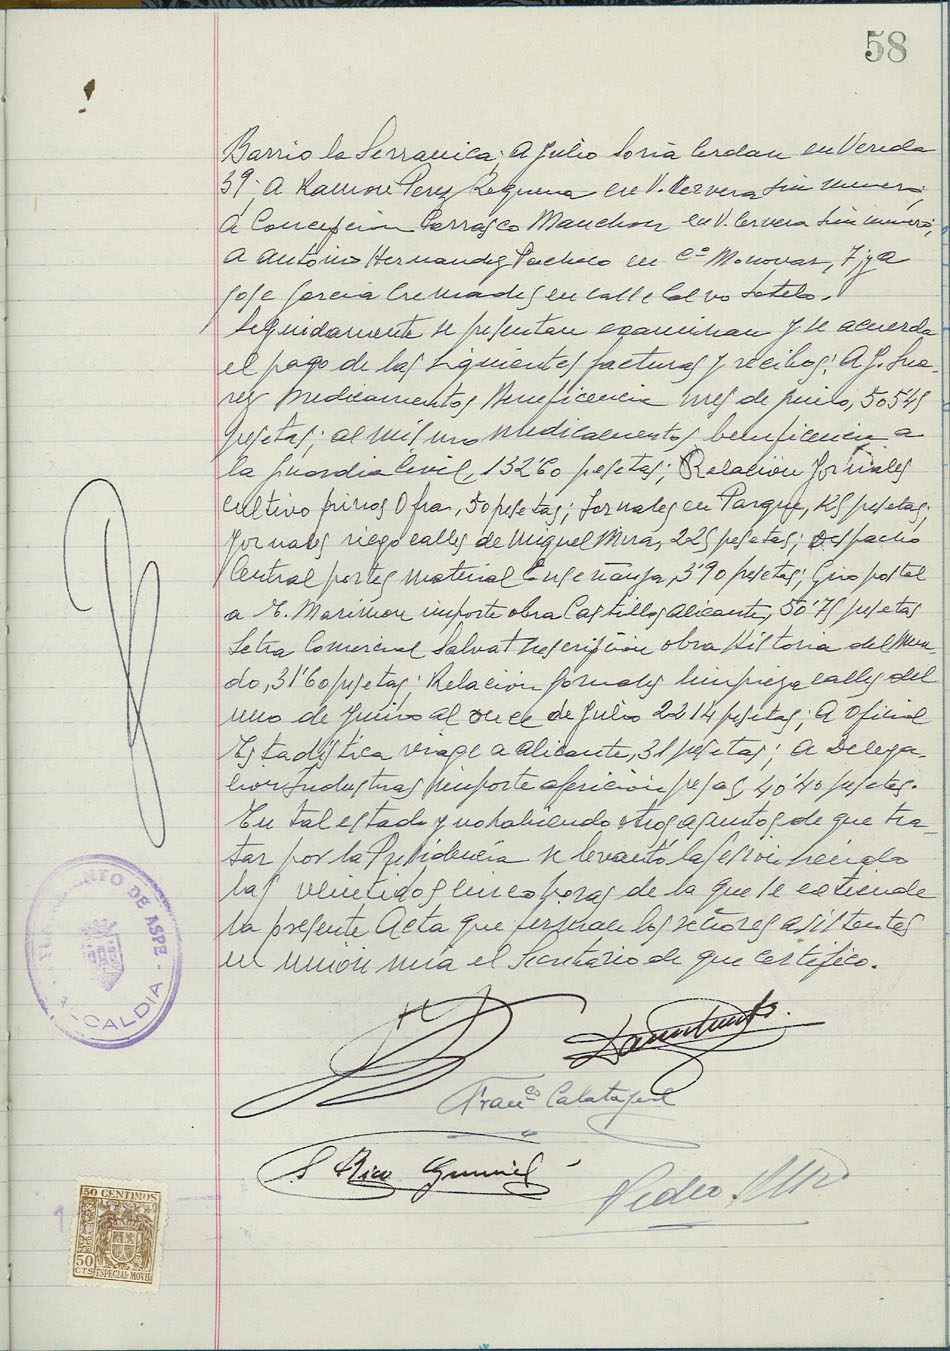 58
Barrio la Serranica; A Julio Soria Cerdan en Vereda
39; A Ramon Perez Requena en V. Cervera sin numero;
A Concepcion Carrasco Manchon en V. Cervera sin numero;
A Antonio Hernandez Pacheco en Cº Monovar, 7; y a
Jose Garcia Cremades en calle Calvo Sotelo.
Seguidamente se presentan examinan y se acuerda
el pago de las siguientes facturas y recibos: A J. Sua-
rez medicamentos Beneficencia mes de junio, 505'45
pesetas; al mismo medicamentos beneficencia a
la Guardia Civil, 132'60 pesetas; Relación jornales
cultivo pinos Ofra, 50 pesetas; Jornales en Parque, 25 pesetas;
Jornales riego calles de Miguel Mira, 225 pesetas; Despacho
Central portes material Enseñanza, 3'90 pesetas; Giro postal
a E. Marimon importe obra Castillos Alicante, 50'75 pesetas
Letra Comercial Salvat suscripción obra Historia del Mun-
do, 31'60 pesetas; Relacion jornales limpieza calles del
uno de Junio al once de Julio 2214 pesetas; A Oficial
Estadistica viage a Alicante, 31 pesetas; A Delega-
cion Industrias importe aferición pesas, 40'40 pesetas.
En tal estado y no habiendo otros asuntos de que tra-
tar por la Presidencia se levantó la sesion siendo
las veintidos cinco horas de la que se extiende
la presente Acta que firman los señores asistentes
en union mia el Secretario de que certifico.
AYUNTAMIENTO DE ASPE
- ALCALDIA -
Franco Calatayud
S Rico
Pedro
50 CENTIMOS
50 CTS ESPECIAL MOVIL